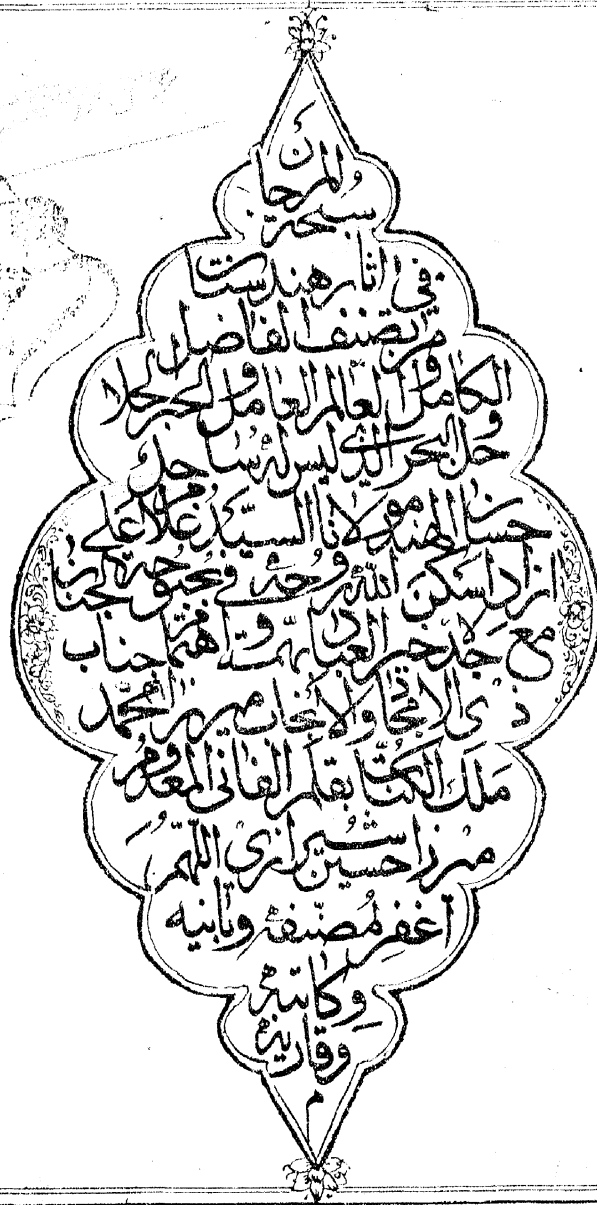 سبحة المرجان
في اثار هندستان
من تصنيف الفاضل
الكامل و العالم العامل و الحبر الحلا
حل و البحر الذي ليس له ساحل
حسان الهند مولانا السيد غلام علي
ازاد اسكن الله روحه في بحبوحة الجنان
مع جده خير العباد بهمة و اهتمام جناب
ذي الامجاد و الانجاب ميرزا محمد
ملك الكتاب بقلم الفاني المعدوم
ميرزا حسين شيرازي اللهم
اغفر لمصنفه و بانيه
و كاتبه
و قاريه
م